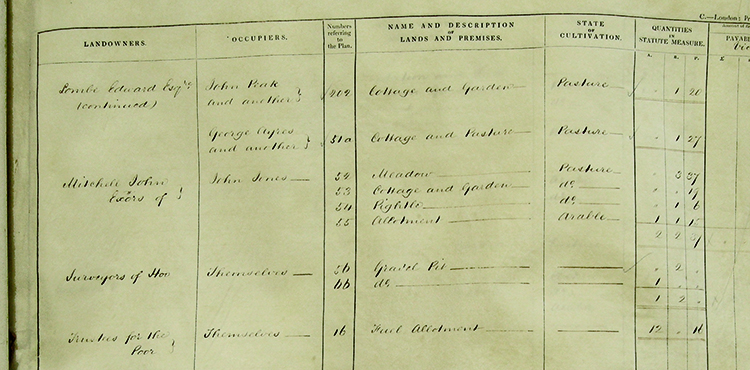 C.—London: P
LANDOWNERS. OCCUPIERS. Numbers referring to the Plan. NAME AND DESCRIPTION OF LANDS AND PREMISES. STATE OF CULTIVATION. QUANTITIES IN STATUTE MEASURE. PAYAB
A. R. P. £
Lombe Edward Esqre John Peak
(continued) and another 202 Cottage and Garden Pasture 1 20
George Ayres
and another 51a Cottage and Pasture Pasture 1 27
Mitchell John John Jones 52 Meadow Pasture 3 37
Exors of 53 Cottage and Garden do
54 Pightle do 1 6
55 Allotment Arable 1 1
2 2
Surveyors of Themselves 56 Gravel Pit 2
66 do 1
1 2
Trustees for the Themselves 16 Fuel Allotment 12 16
Poor